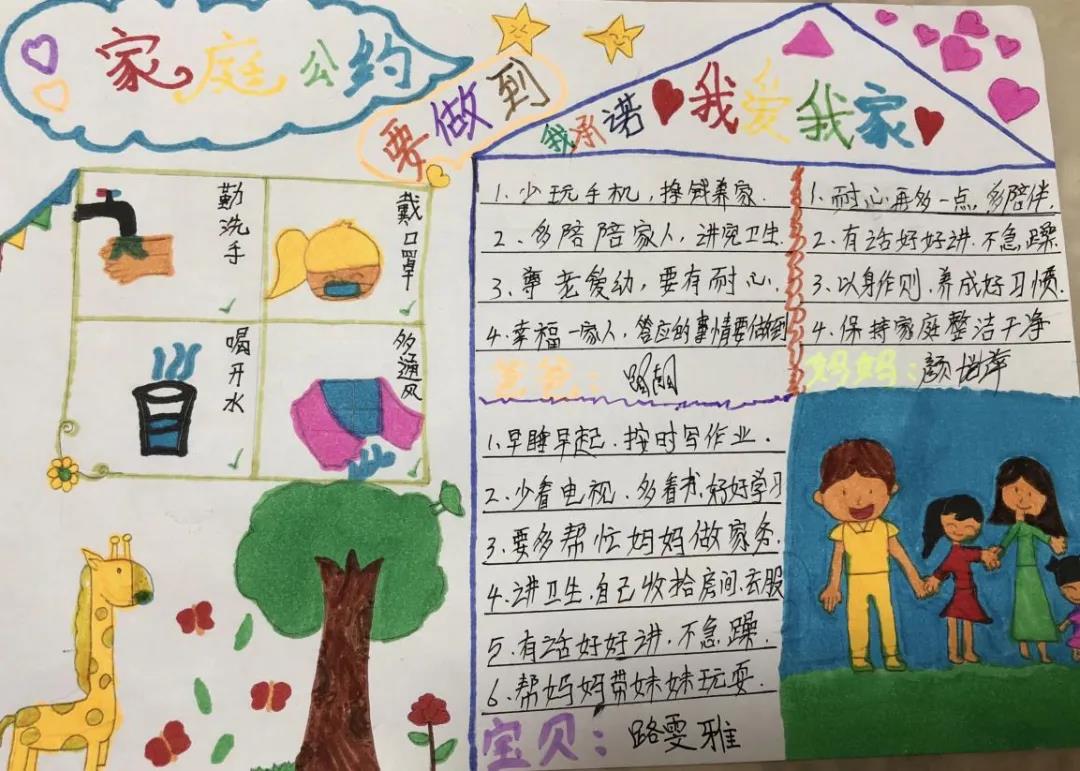 家庭公约
要做到
我承诺
我爱我家
勤洗手
戴口罩
喝开水
多通风
1.少玩手机,挣钱养家.
2、多陪陪家人,讲究卫生.
3、尊老爱幼,要有耐心.
4.幸福一家人,答应的事情要做到
爸爸:
1.耐心再多一点,多陪伴,
2.有话好好讲.不急躁.
3.以身作则.养成好习惯.
4.保持家庭整洁干净
妈妈:颜
1.早睡早起.按时写作业.
2.少看电视.多看书.好好学习
3.要多帮忙妈妈做家务.
4.讲卫生.自己收拾房间.衣服
5.有话好好讲.不急躁.
6.帮妈妈带妹妹玩耍.
宝贝:路雯雅